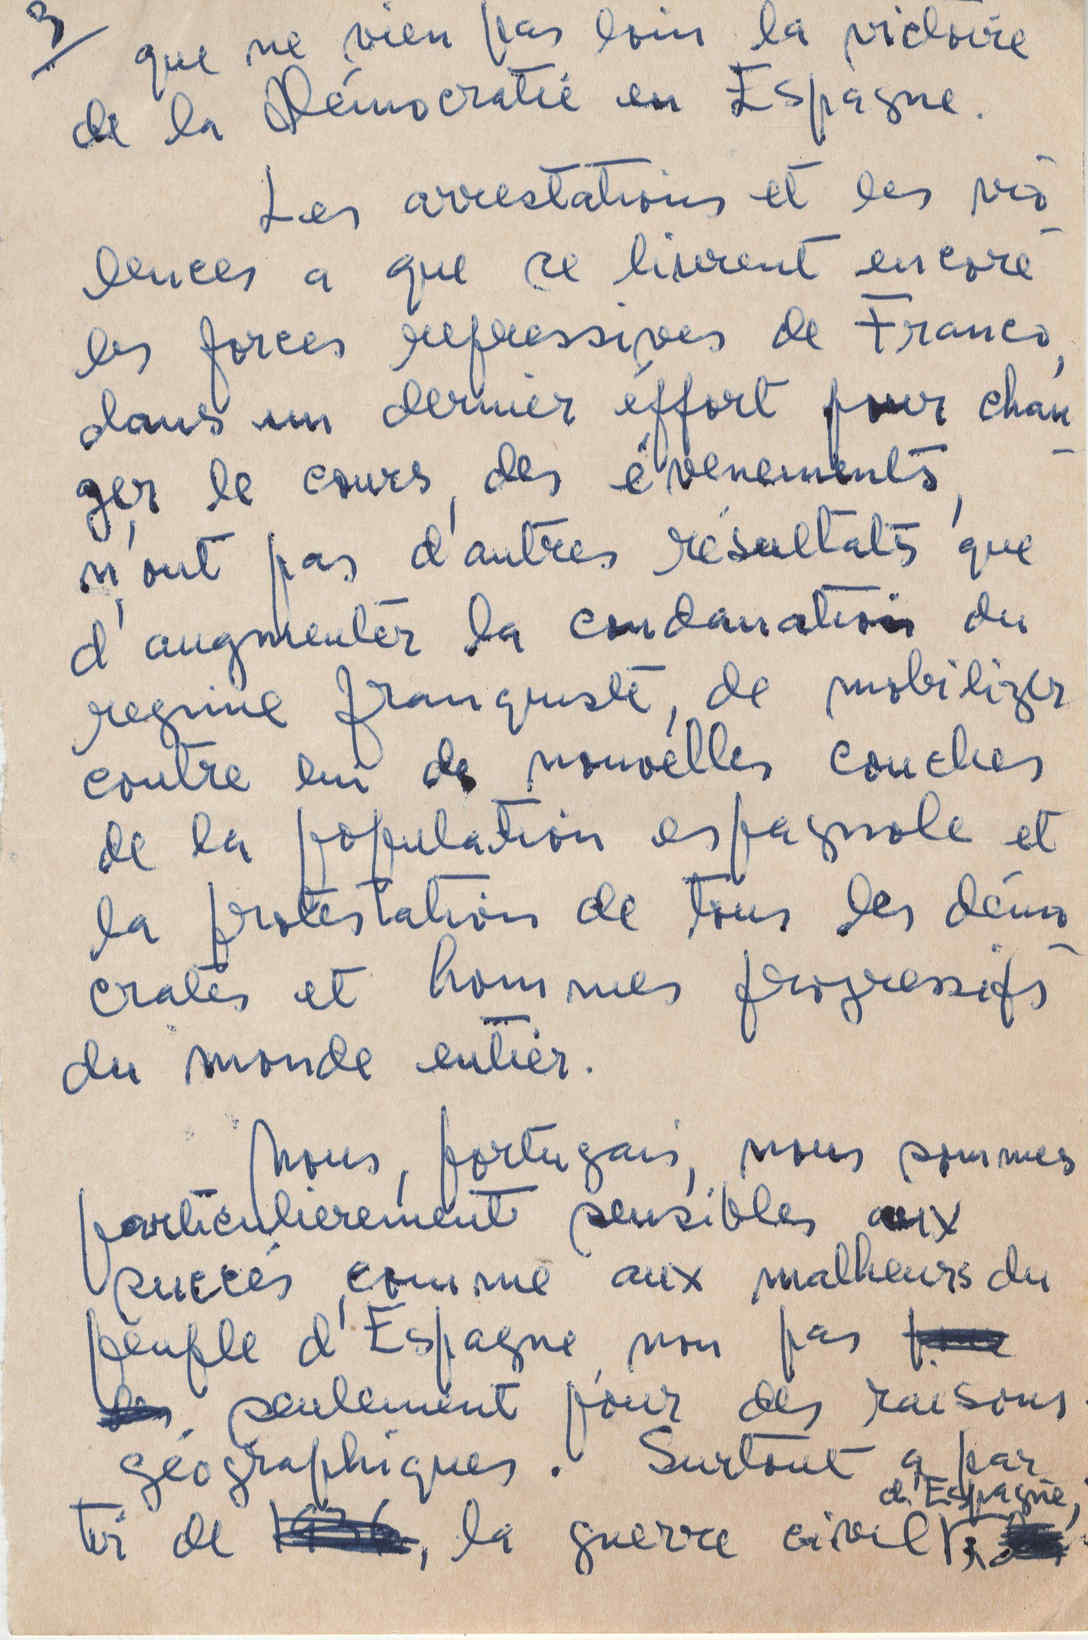 3
que ne vien pas loin la victoire
de la Démocratie en Espagne.
Les arrestations et les vio
lences a que se livrent encore
les forces repressives de Franco,
dans un dernier éffort pour chan
ger le cours des évenements,
n'ont pas d'autres résultats que
d'augmenter la condanation du
regime franquiste, de mobilizer
contre lui de nouvelles couches
de la population espagnole et
la protestation de tous les démo
crates et hommes progressifs
du monde entier.
Nous, portugais, nous sommes
particulierement sensibles aux
succés comme aux malheurs du
peuple d'Espagne, non pas
seulement pour des raisons
géographiques. Surtout a par
d'Espagne,
tir de 1936, la guerre civil